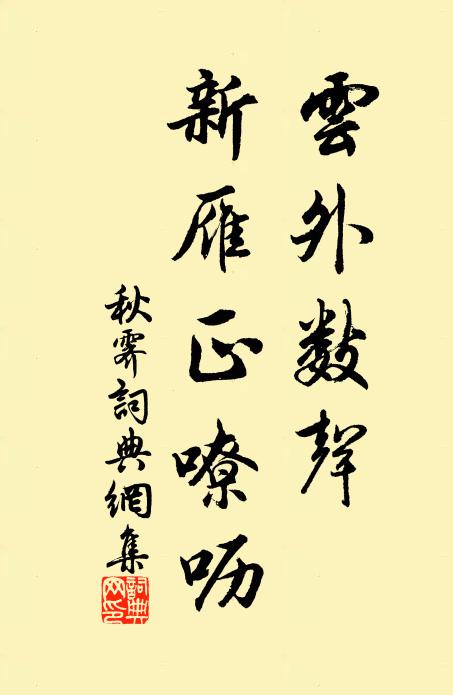 雲外數聲
新雁正嘹呖
秋霽詞典網集
詞典網印